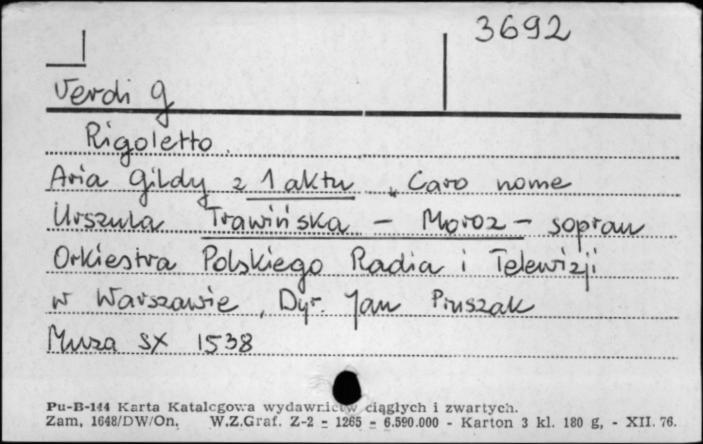 3692
Verdi G
Rigoletto.
Aria Gildy z 1 aktu „Caro nome
Urszula Trawińska - Moroz - sopran
Orkiestra Polskiego Radia i Telewizji
w Warszawie, Dyr. Jan Pruszak
Muza SX 1538
Pu-B-144 Karta Katalogowa wydawnictw ciągłych i zwartych.
Zam. 1648/DW/On. W.Z.Graf. Z-2 - 1265 - 6.590.000 - Karton 3 kl. 180 g, - XII. 76.